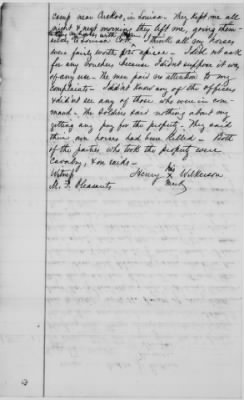 camp near Cuckoo, in Louisa. They kept me all
night & next morning they left me, going them-
selves to Louisa
I think all my horses
were fairly worth $ apiece. I did not ask
for any voucher because I did not suppose it was
of any use. The men paid no attention to my
complaints. I did not know any of the officers
& did not see any of those who were in com-
mand. The soldiers said nothing about my
getting any pay for the property. They said
their own horses had been killed. Both
of the parties who took the property were
cavalry, & on raids.
Witness Henry his X Wilkerson
M. F. Pleasants mark